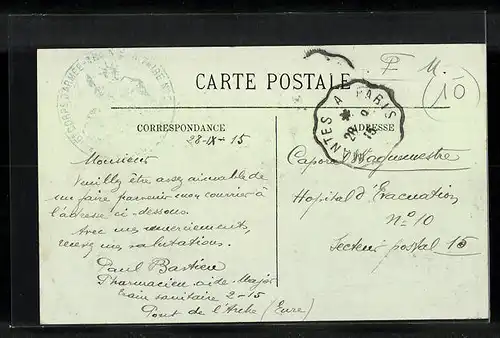 F. M.
10
CARTE POSTALE
NANTES A PARIS
28 9
15
CORRESPONDANCE
ADRESSE
28-IX-15
Monsieur
Veuillez être assez aimable de
me faire parvenir mon courrier à
l'adresse ci-dessous.
Avec mes remerciements,
recevez mes salutations.
Paul Bastien
Pharmacien aide Major
train sanitaire 2-15
Pont de l'Arche (Eure)
Caporal Vaguemestre
Hopital d'Evacuation
N° 10
Secteur postal 15